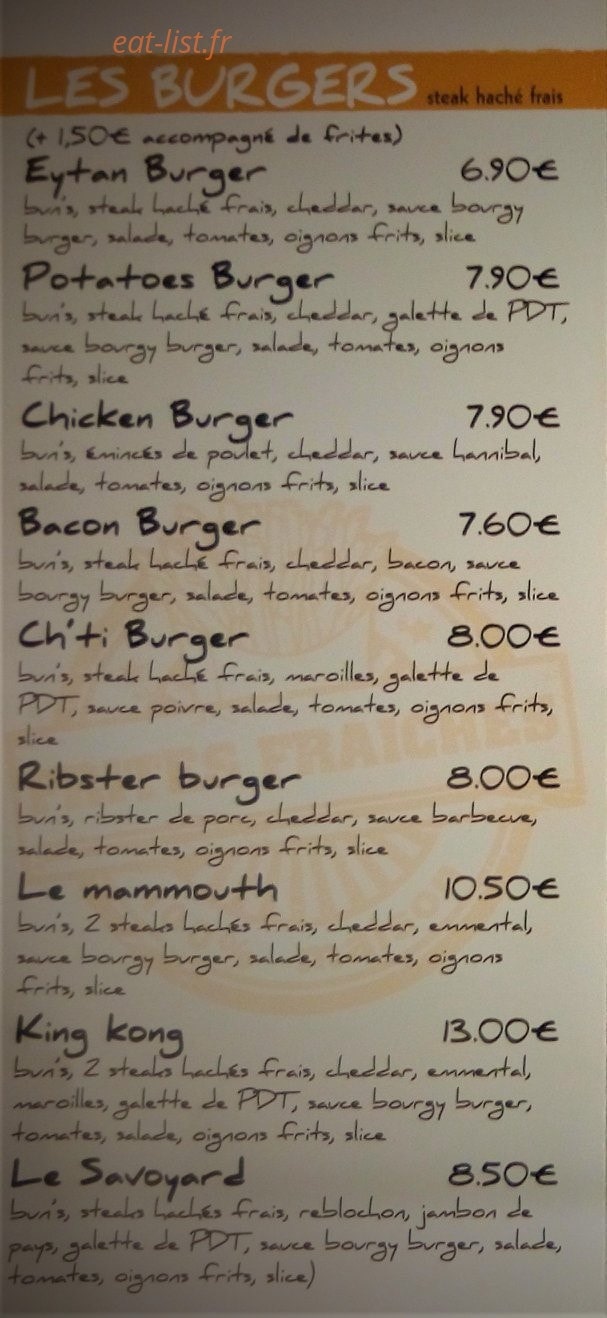 eat-list.fr
LES BURGERS steak haché frais
(+ 1,50€ accompagné de frites)
Eytan Burger 6.90€
bun's, steak haché frais, cheddar, sauce bourgy
burger, salade, tomates, oignons frits, slice
Potatoes Burger 7.90€
bun's, steak haché frais, cheddar, galette de PDT,
sauce bourgy burger, salade, tomates, oignons
frits, slice
Chicken Burger 7.90€
bun's, émincés de poulet, cheddar, sauce hannibal,
salade, tomates, oignons frits, slice
Bacon Burger 7.60€
bun's, steak haché frais, cheddar, bacon, sauce
bourgy burger, salade, tomates, oignons frits, slice
Ch'ti Burger 8.00€
bun's, steak haché frais, maroilles, galette de
PDT, sauce poivre, salade, tomates, oignons frits,
slice
Ribster burger 8.00€
bun's, ribster de porc, cheddar, sauce barbecue,
salade, tomates, oignons frits, slice
Le mammouth 10.50€
bun's, 2 steaks hachés frais, cheddar, emmental,
sauce bourgy burger, salade, tomates, oignons
frits, slice
King kong 13.00€
bun's, 2 steaks hachés frais, cheddar, emmental,
maroilles, galette de PDT, sauce bourgy burger,
tomates, salade, oignons frits, slice
Le Savoyard 8.50€
bun's, steaks hachés frais, reblochon, jambon de
pays, galette de PDT, sauce bourgy burger, salade,
tomates, oignons frits, slice)